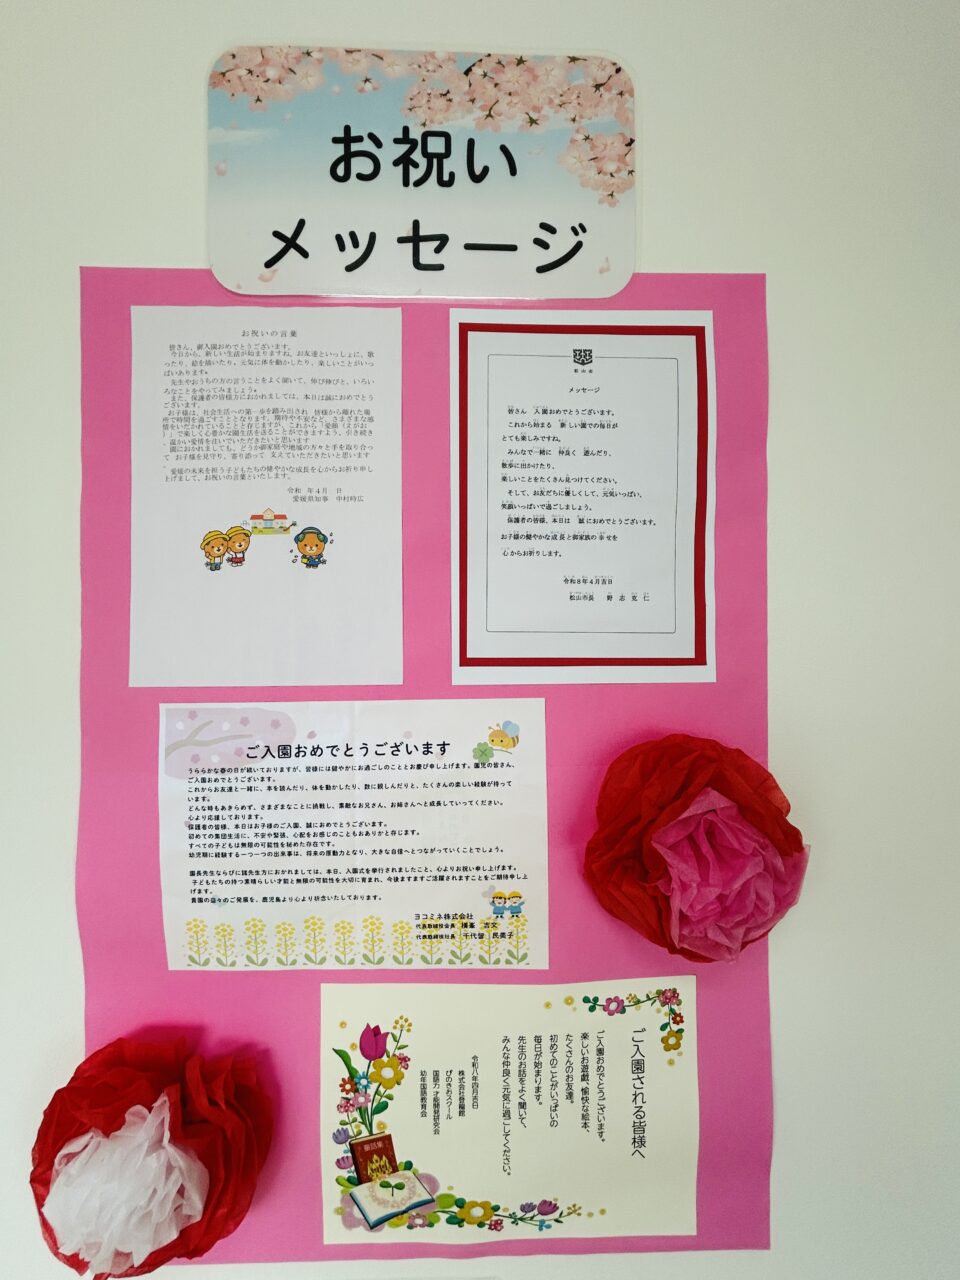 お祝い
メッセージ
お祝いの言葉
皆さん、御入園おめでとうございます。
今日から、新しい生活が始まりますね。お友達といっしょに、歌
ったり、絵を描いたり、元気に体を動かしたり、楽しいことがいっ
ぱいあります。
先生やおうちの方の言うことをよく聞いて、伸び伸びと、いろい
ろなことをやってみましょう。
また、保護者の皆様方におかれましては、本日は誠におめでとう
ございます。
お子様は、社会生活への第一歩を踏み出され 皆様から離れた場
所で時間を過ごすこととなります。期待や不安など、さまざまな感
情をいだかれていることと存じますが、これから「愛顔（えがお
）」で楽しく心豊かな園生活を送ることができますよう、引き続き
温かい愛情を注いでいただきたいと思います
園におかれましても、どうか御家庭や地域の方々と手を取り合っ
て お子様を見守り、寄り添って 支えていただきたいと思います
愛媛の未来を担う子どもたちの健やかな成長を心からお祈り申し
上げまして、お祝いの言葉といたします。
令和 年４月 日
愛媛県知事 中村時広
松山市
メッセージ
皆さん 入園おめでとうございます。
これから始まる 新しい園での毎日が
とても楽しみですね。
みんなで一緒に 仲良く 遊んだり、
散歩に出かけたり、
楽しいことをたくさん見つけてください。
そして、お友だちに優しくして、元気いっぱい、
笑顔いっぱいで過ごしましょう。
保護者の皆様、本日は 誠におめでとうございます。
お子様の健やかな成長と御家族の幸せを
心からお祈りします。
令和８年４月吉日
松山市長 野志克仁
ご入園おめでとうございます
うららかな春の日が続いておりますが、皆様には健やかにお過ごしのこととお慶び申し上げます。園児の皆さん、
ご入園おめでとうございます。
これからお友達と一緒に、本を読んだり、体を動かしたり、数に親しんだりと、たくさんの楽しい経験が待って
います。
どんな時もあきらめず、さまざまなことに挑戦し、素敵なお兄さん、お姉さんへと成長していってください。
心より応援しております。
保護者の皆様、本日はお子様のご入園、誠におめでとうございます。
初めての集団生活に、不安や緊張、心配をお感じのこともおありかと存じます。
すべての子どもは無限の可能性を秘めた存在です。
幼児期に経験する一つ一つの出来事は、将来の原動力となり、大きな自信へとつながっていくことでしょう。
園長先生ならびに諸先生方におかれましては、本日、入園式を挙行されましたこと、心よりお祝い申し上げます。
子どもたちの持つ素晴らしい才能と無限の可能性を大切に育まれ、今後ますますご活躍されますことをご期待申し上
げます。
貴園の益々のご発展を、鹿児島より心より祈念いたしております。
ヨコミネ株式会社
代表取締役会長 横峯 吉文
代表取締役社長 千代留 民美子
ご入園される皆様へ
ご入園おめでとうございます。
楽しいお遊戯、愉快な絵本、
たくさんのお友達。
初めてのことがいっぱいの
毎日が始まります。
先生のお話をよく聞いて、
みんな仲良く元気に過ごしてください。
令和八年四月吉日
株式会社登龍館
ぴのきおスクール
国語力 才能開発研究会
幼年国語教育会
童話集